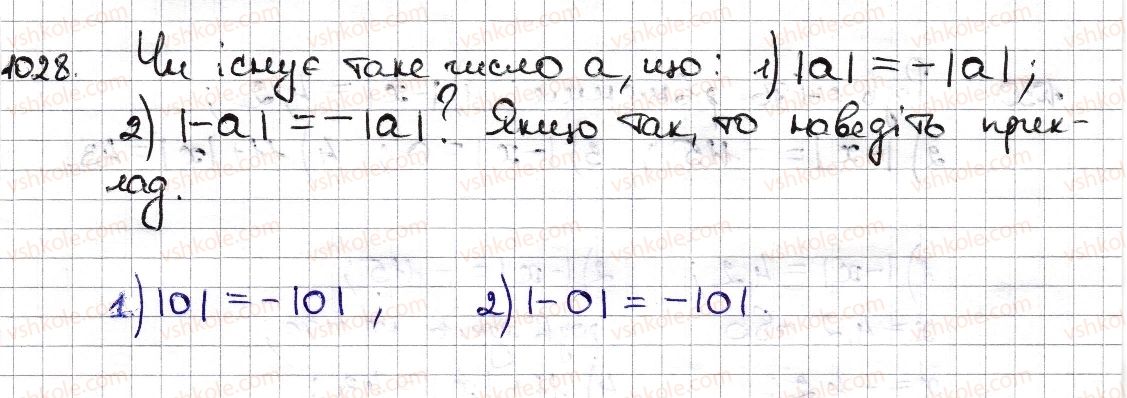 1028. Чи існує таке число a, що: 1) |a| = -|a|;
2) |-a| = -|a|? Якщо так, то наведіть прик-
лад.
1) |0| = -|0|; 2) |-0| = -|0|.